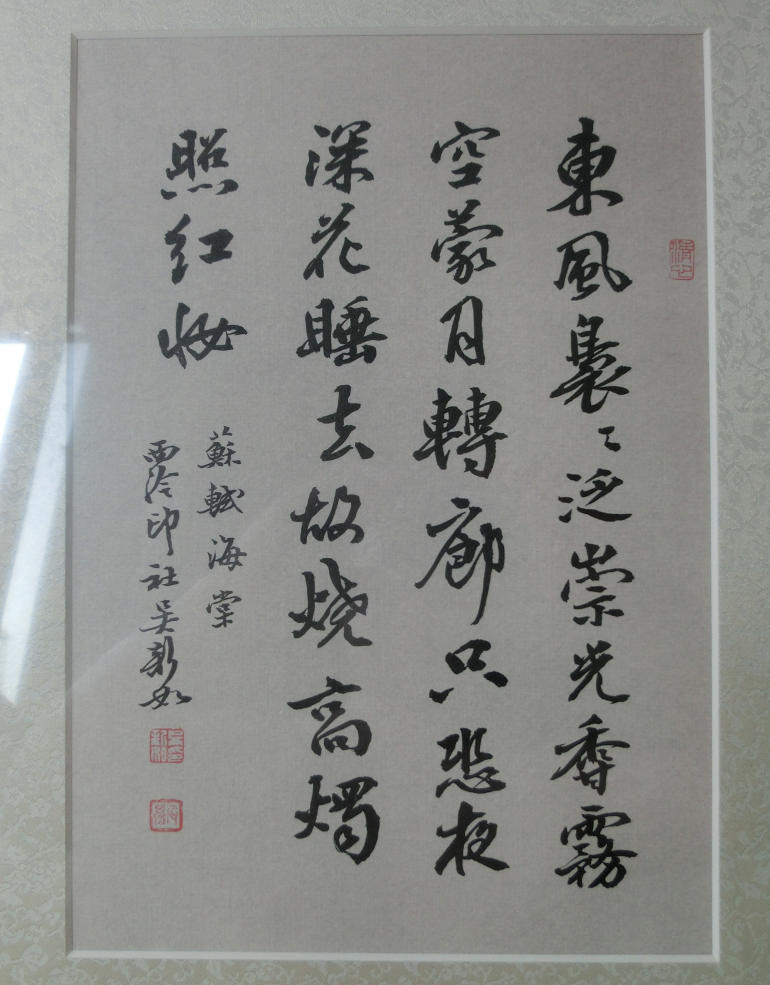 東風裊〻泛崇光香霧
空蒙月轉廊只恐夜
深花睡去故燒高燭
照红妝
蘇軾海棠
西泠印社吴新如